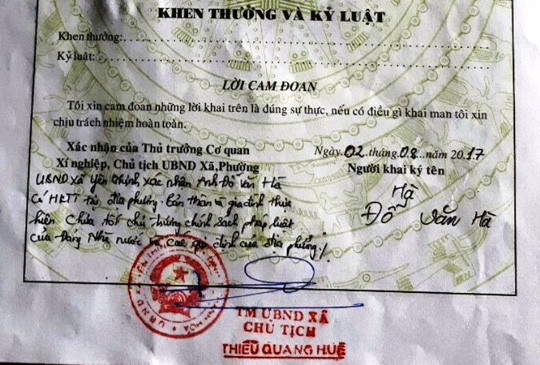 KHEN THƯỞNG VÀ KỶ LUẬT
Khen thưởng:
Kỷ luật:
LỜI CAM ĐOAN
Tôi xin cam đoan những lời khai trên là đúng sự thực, nếu có điều gì khai man tôi xin
chịu trách nhiệm hoàn toàn.
Xác nhận của Thủ trưởng Cơ quan
Xí nghiệp, Chủ tịch UBND Xã, Phường
Ngày 02 tháng 08 năm 2017
Người khai ký tên
UBND xã Yên Thịnh xác nhận Anh Đỗ Văn Hà
Có HKTT tại địa phương. Bản thân và gia đình thực
hiện Chưa tốt chủ trương chính sách pháp luật
của Đảng Nhà nước và các quy định của địa phương./.
Hà
Đỗ Văn Hà
TM UBND XÃ
CHỦ TỊCH
THIỀU QUANG HUẾ